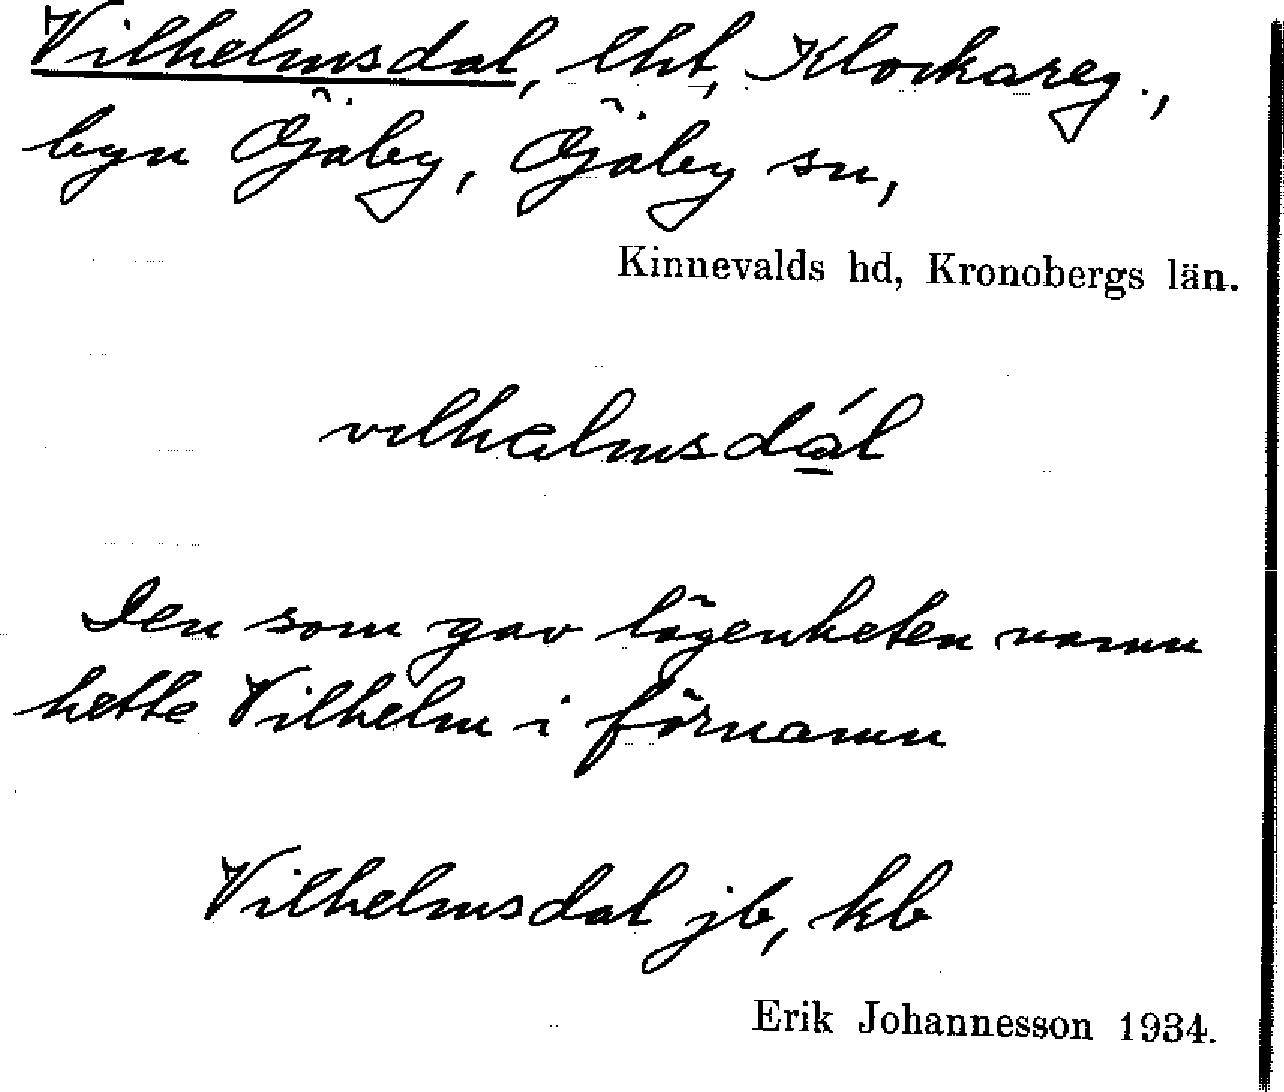 Vilhelmsdal, lht, Klockareg.,
byn Öjaby, Öjaby sn,
Kinnevalds hd, Kronobergs län.
vilhalmsdál
Den som gav lägenheten namn
hette Vilhelm i förnamn
Vilhelmsdal jb, kb
Erik Johannesson 1934.